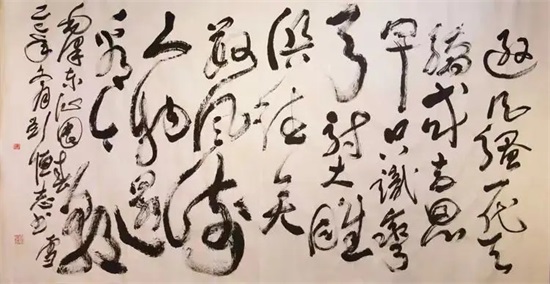 逊风骚一代天
骄成吉思
汗只識彎
弓射大雕
俱往矣
数风流
人物還
看今
朝
毛澤东沁園春
年六月
恒志书雪